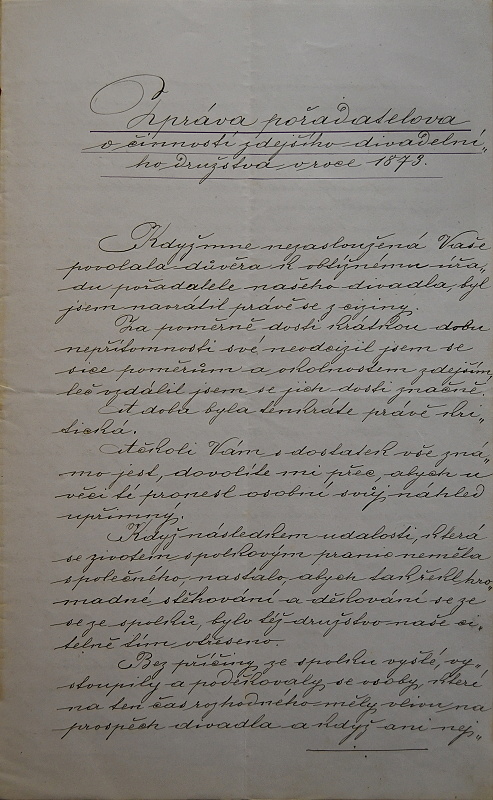 Zpráva pořadatelova
o činnosti zdejšího divadelní„
ho družstva v roce 1873.
Když mne nezasloužená Vaše
povolala důvěra k obtížnému úřa„
du pořadatele našeho divadla, byl
jsem navrátil právě se z ciziny.
Za poměrně dosti krátkou dobu
nepřítomnosti své neodcizil jsem se
sice poměrům a okolnostem zdejším,
leč vzdálil jsem se jich dosti značně.
A doba byla tenkráte právě kri„
tická.
Ačkoli Vám s dostatek vše zná„
mo jest, dovolíte mi přec, abych u
věci té pronesl osobní svůj náhled
upřímný.
Když následkem udalosti, která
se životem spolkovým pranic neměla
společného, nastalo, abych tak řekl hro„
madné stěhování a děkování se ze
se ze spolků, bylo též družstvo naše ci„
telně tím otřeseno.
Bez příčiny ze spolku vyšlé, vy„
stoupily a poděkovaly se osoby, které
na ten čas rozhodného měly vlivu na
prospěch divadla a když ani nej„